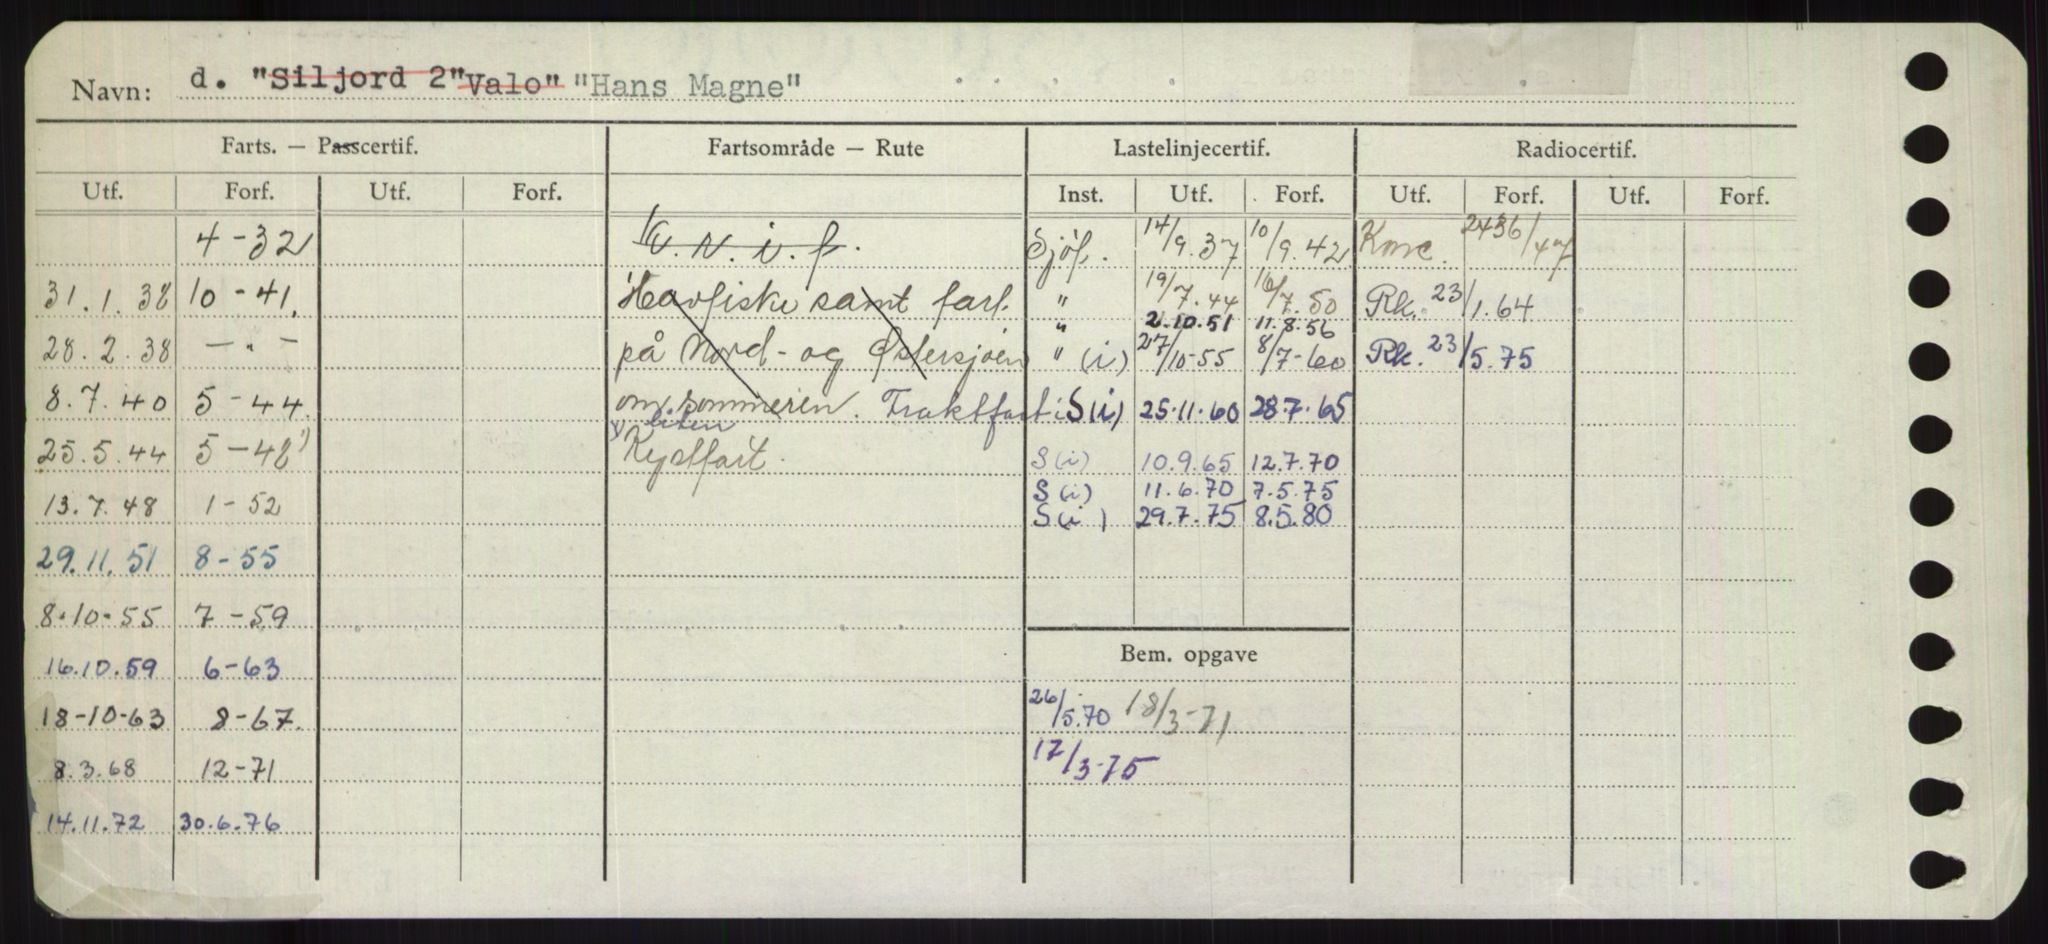 Navn: d. "Siljord 2" Valo" "Hans Magne"
Farts. — Passcertif. Fartsområde — Rute Lastelinjecertif. Radiocertif.
Utf. Forf. Utf. Forf. Inst. Utf. Forf. Utf. Forf. Utf. Forf.
4-32 K.N.i.f. Sjöf. 14/9.37 10/9.42 Konc. 2436/47
31.1.38 10-41. Havfiske samt fart " 19/7.44 16/7.50 Rk. 23/1.64
" 2.10.51 11.8.56
28.2.38 —"— på Nord- og Østersjøen " (i) 27/10-55 8/7-60 Rk. 23/5.75
8.7.40 5-44. om sommeren. Fraktfart i S(i) 25.11.60 28.7.65
liten
25.5.44 5-48') Kystfart. S(i) 10.9.65 12.7.70
S(i) 11.6.70 7.5.75
13.7.48 1-52 S(i) 29.7.75 8.5.80
29.11.51 8-55
8.10.55 7-59
Bem. opgave
16.10.59 6-63
18-10-63 8-67. 26/5.70 18/3-71
8.3.68 12-71 17/3-75
14.11.72 30.6.76